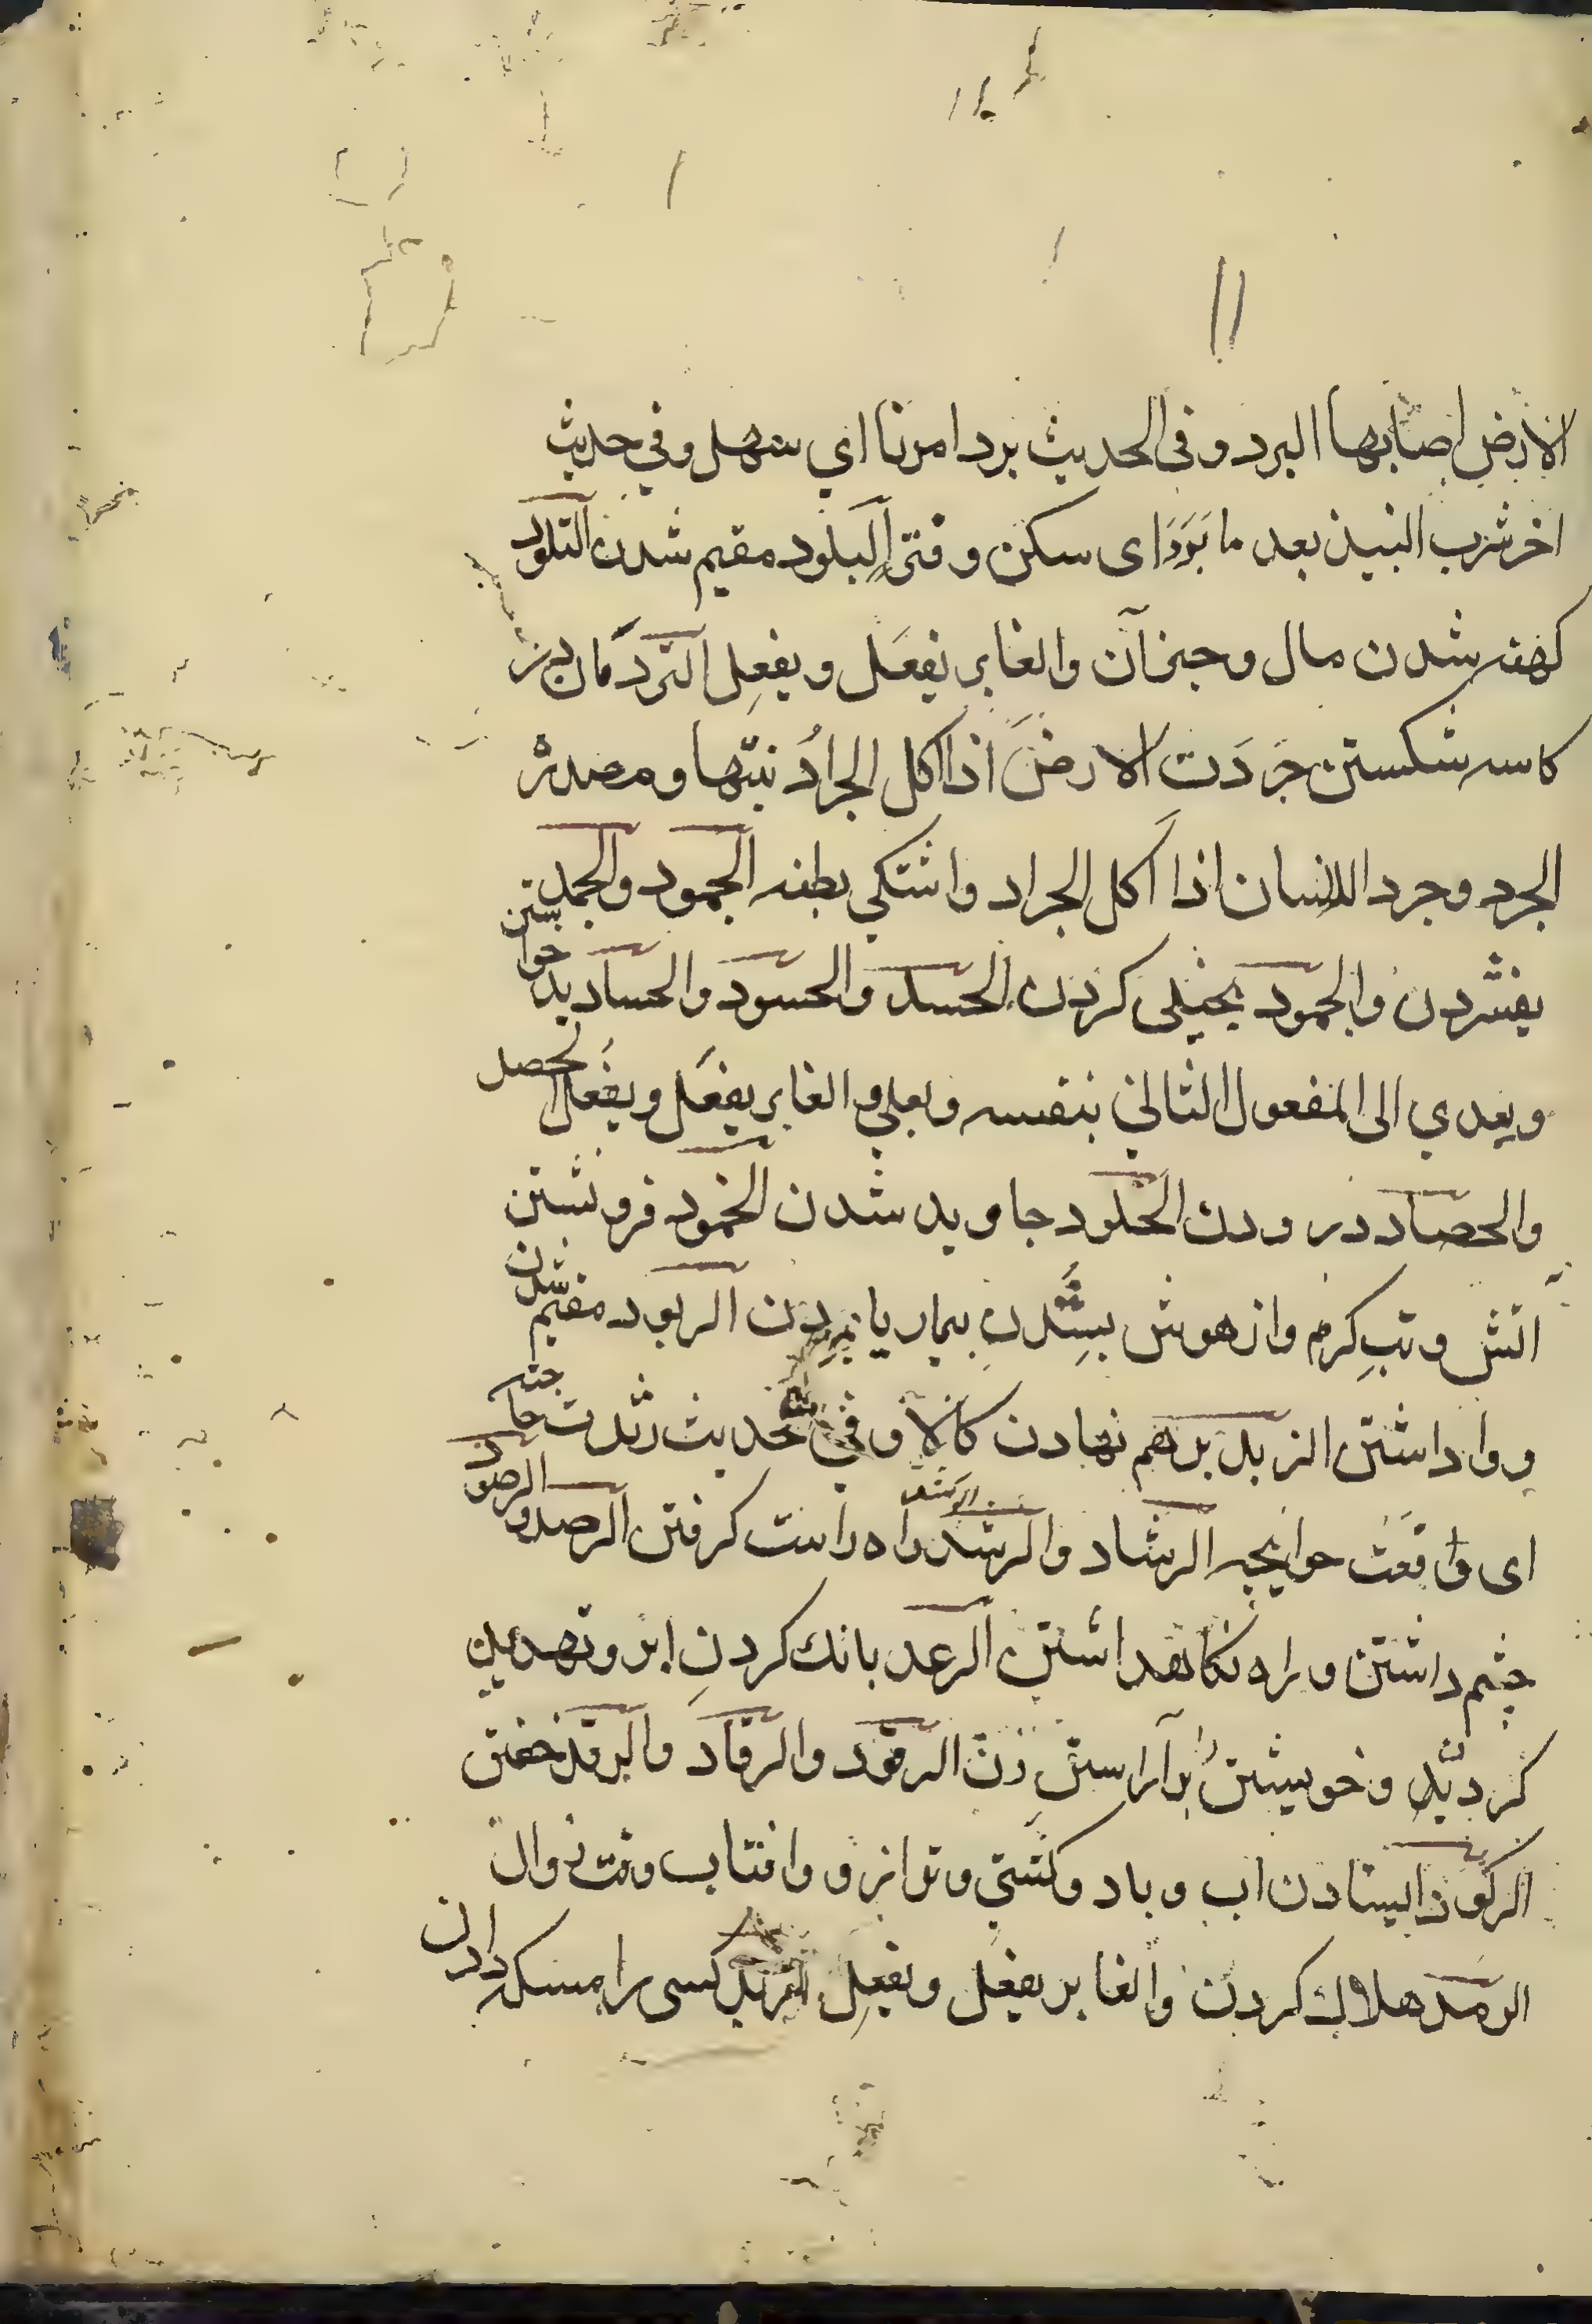 الارض اصابها البرد و فی الحدیث برد امرنا ای سهل و فی حدیث
اخر شرب النبیذ بعد ما بَرَدَ ای سکن و فتر البلود مقیم شدن التلود
کهنه شدن مال و جیزآن والغابر یفعَل و یفعِل الثرد نان در
کاسه شکستن جَرَدَت الارضَ اذا اکل الجرادُ نبتها و مصدره
الجرد و جرد الانسان اذا اکل الجراد و اشتکی بطنه الجمود والجمد
بفسُردن والجمود بخیلی کردن الحسد والحسود والحساد بد خواستن
و یعدی الی المفعول الثانی بنفسه و بعلی والغابر یفعَل و یفعُل الحصد
والحصاد درودن الخلود جاوید شدن الخمود فرو نشستن
اتش و تبِ کرم و از هوش بِشُدنِ بیمار یا بمردن الربود مقیم شدن
و وا داشتن الرثد بر هم نهادن کالا و فی حدیث رثدت حاجته
ای وافَقَت حوایجه الرشاد والرشد راه راست کرفتن الرصد والرصود
چشم داشتن و راه نکاهداشتن الرعد بانك کردنِ ابر و تهدید
کردن و خویشتن را بر آراستنِ زن الرقود والرقاد والرقد خفتن
الرکود ایستادن اب و باد و کشتی و ترازو و افتاب وقت زوال
الرمد هلاك کردن والغابر یفعُل و یفعِل الزبد کسی را مسکه دادن